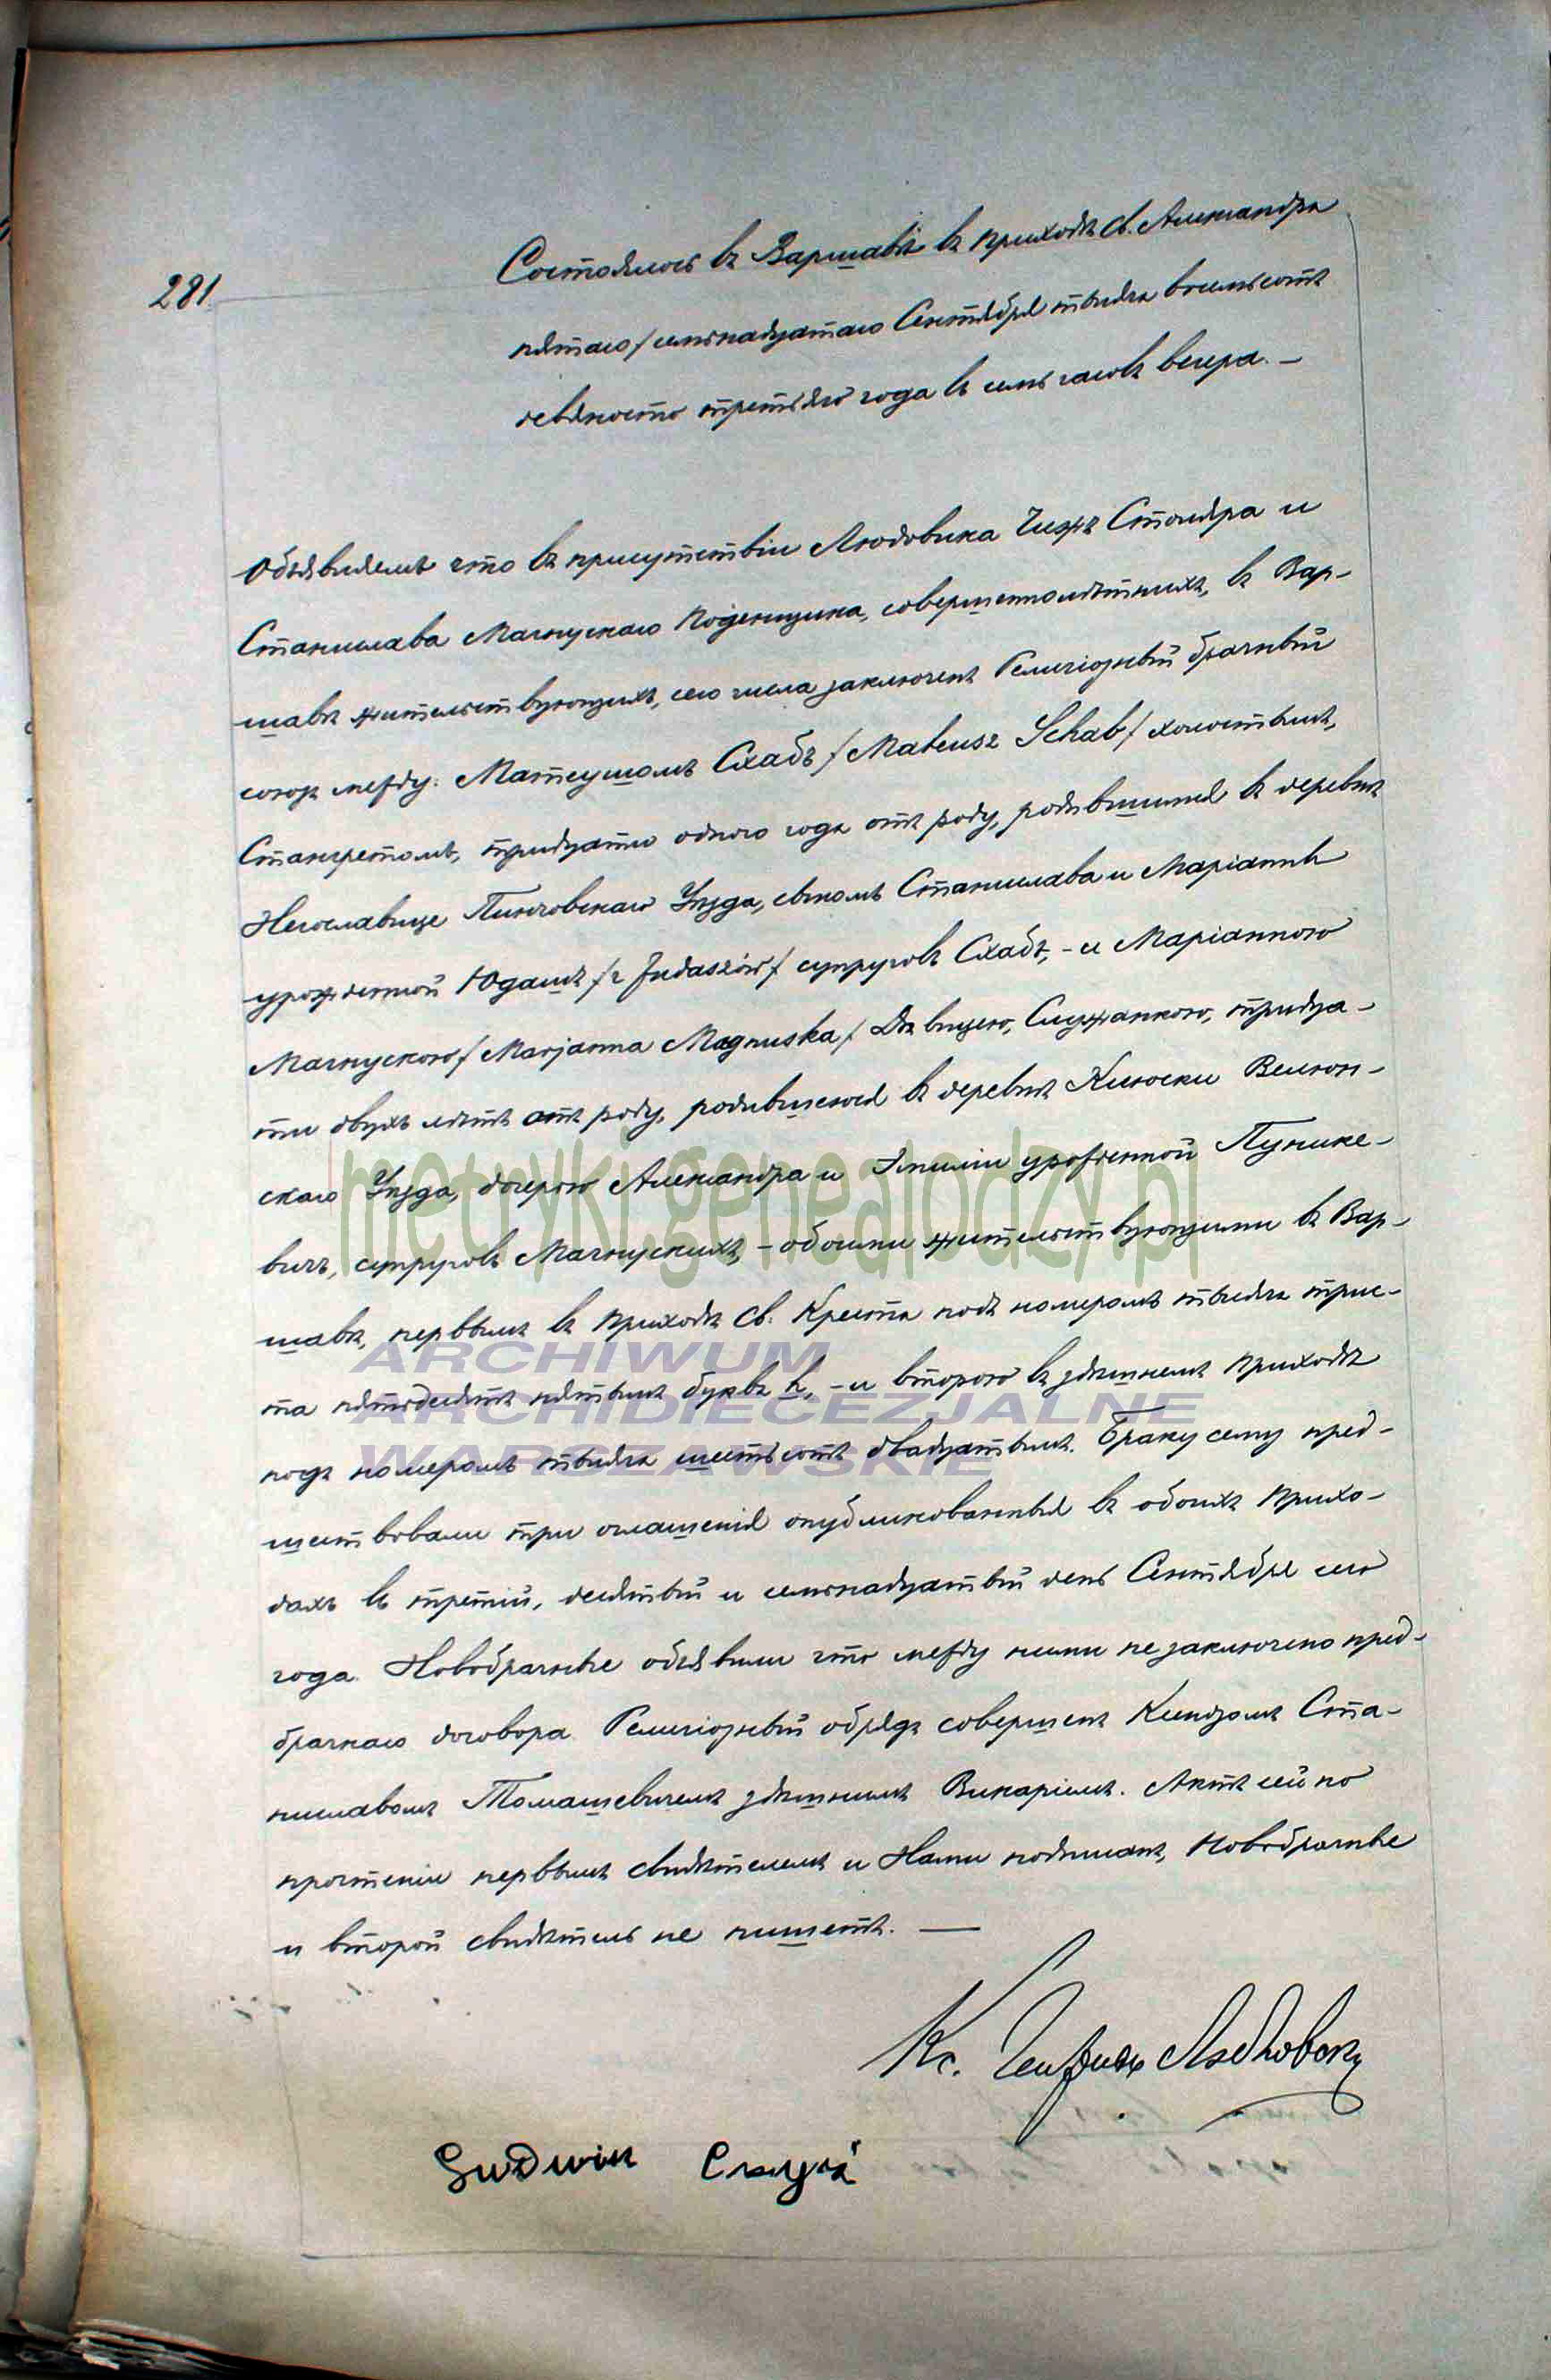 281
Состоялось въ Варшавѣ въ приходѣ св. Александра
пятаго/семнадцатаго Сентября тысяча восемьсотъ
девяносто третьяго года въ семь часовъ вечера. —
Объявляемъ что въ присутствіи Людовика Чижъ Столяра и
Станислава Магнускаго Поденщика, совершеннолѣтнихъ, въ Вар-
шавѣ жительствующихъ, сего числа заключенъ Религіозный брачный
союзъ между: Матеушомъ Схабъ /Mateusz Schab/ холостымъ,
Стангретомъ, тридцати одного года отъ роду, родившимся въ деревнѣ
Негославице Пинчовскаго Уѣзда, сыномъ Станислава и Маріанны
урожденной Юдашъ /z Judaszów/ супруговъ Схабъ, - и Маріанною
Магнускою /Marjanna Magnuska/ Дѣвицею, Служанкою, тридца-
ти двухъ лѣтъ отъ роду, родившеюся въ деревнѣ Клюски Велюн-
скаго Уѣзда, дочерью Александра и Эмиліи урожденной Пунике-
вичъ, супруговъ Магнускихъ, - обоими жительствующими въ Вар-
шавѣ, первымъ въ приходѣ св. Креста подъ номеромъ тысяча трис-
та пятьдесятъ пятымъ буквѣ h, - и второю въ здѣшнемъ приходѣ
подъ номеромъ тысяча шестьсотъ двадцатымъ. Браку сему пред-
шествовали три оглашенія опубликованныя въ обоихъ прихо-
дахъ въ третій, десятый и семнадцатый день Сентября сего
года. Новобрачные объявили что между ними не заключено пред-
брачнаго договора. Религіозный обрядъ совершенъ Ксендзомъ Ста-
ниславомъ Томашевичемъ здѣшнимъ Викаріемъ. Актъ сей по
прочтеніи первымъ свидѣтелемъ и Нами подписанъ, Новобрачные
и второй свидѣтель не пишетъ. —
Кс.
metryki.genealodzy.pl
ARCHIWUM
ARCHIDIECEZJALNE
WARSZAWSKIE